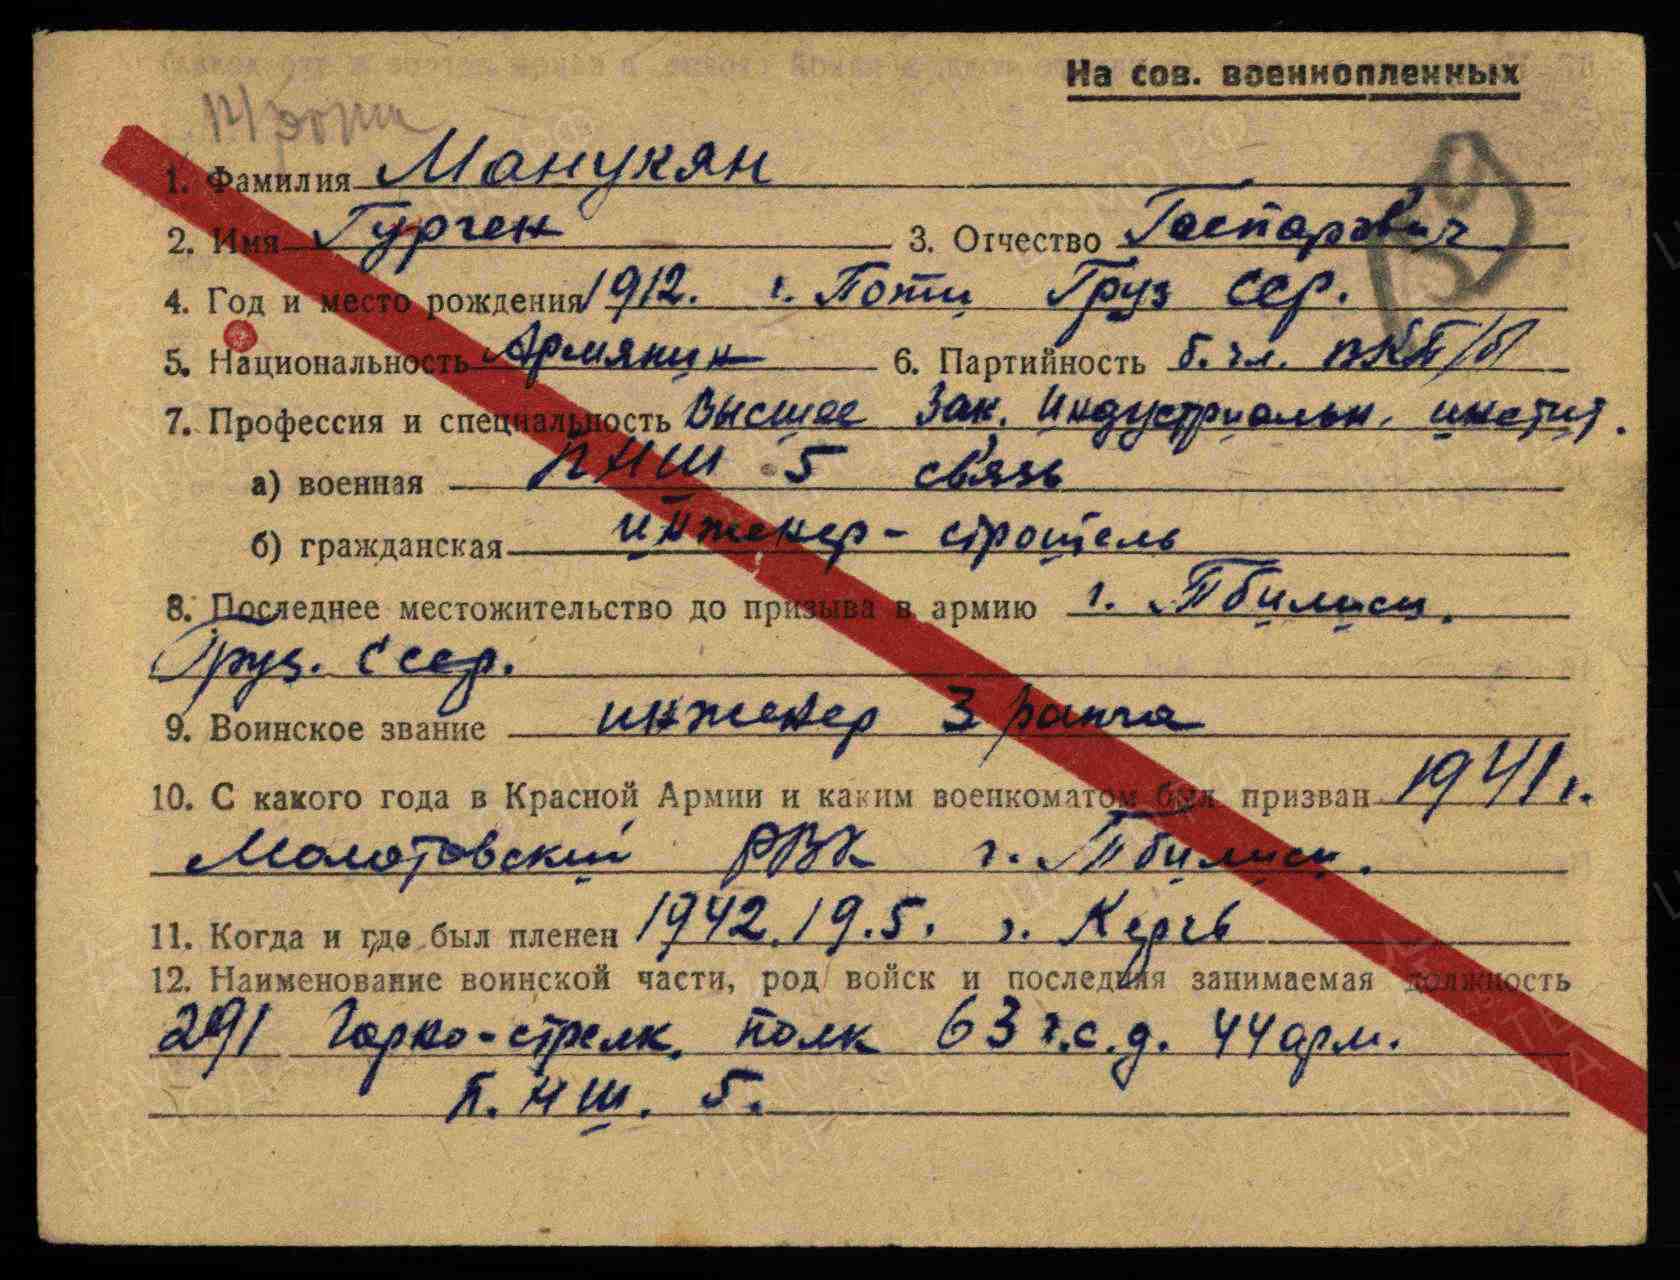 На сов. военнопленных
14 рота
1. Фамилия Манукян
2. Имя Гурген 3. Отчество Гаспарович
4. Год и место рождения 1912. г. Поти Груз ССР.
5. Национальность Армянин 6. Партийность б. чл. ВКП/б/
7. Профессия и специальность Высшее Зак. Индустриальн. инстит.
а) военная ПНШ 5 связь
б) гражданская инженер-строитель
8. Последнее местожительство до призыва в армию г. Тбилиси.
Груз. ССР.
9. Воинское звание инженер 3 ранга
10. С какого года в Красной Армии и каким военкоматом был призван 1941 г.
Молотовский РВК г. Тбилиси.
11. Когда и где был пленен 1942.19.5. г. Керчь
12. Наименование воинской части, род войск и последняя занимаемая должность
291 Горно-стрелк. полк 63 г.с.д. 44 арм.
П.НШ. 5.